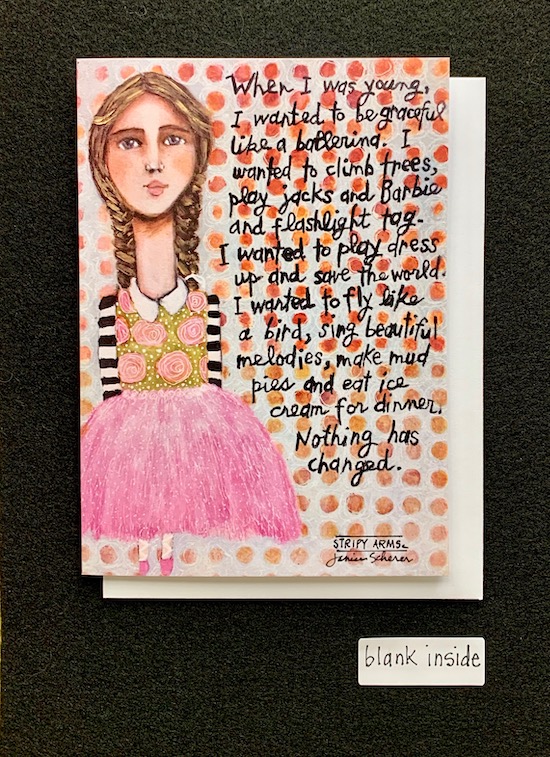 When I was young,
I wanted to be graceful
like a ballerina. I
wanted to climb trees,
play jacks and Barbie
and flashlight tag.
I wanted to play dress
up and save the world.
I wanted to fly like
a bird, sing beautiful
melodies, make mud
pies and eat ice
cream for dinner.
Nothing has
changed.
STRIPY ARMS
Janice Scherer
blank inside